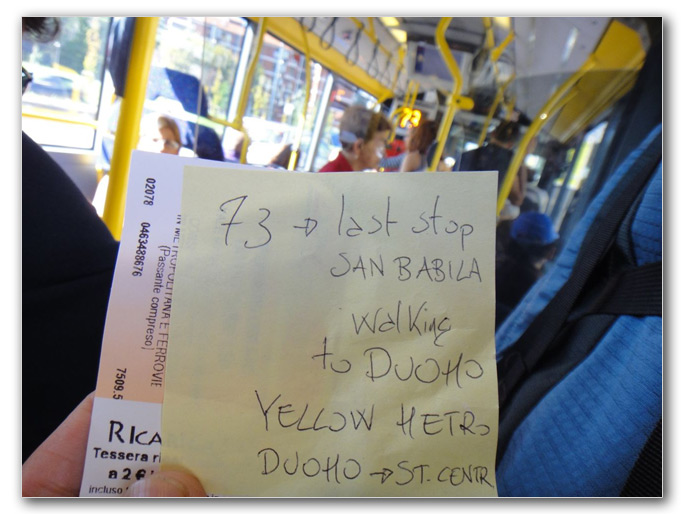 73 → last stop
SAN BABILA
walking
to DUOMO
YELLOW METRO
DUOMO → ST. CENTR
73
02078 0463488676
IN METROPOLITANA E FERROVIE
(Passante compreso)
7509.5
RICA
Tessera ri
a 2 €
incluso